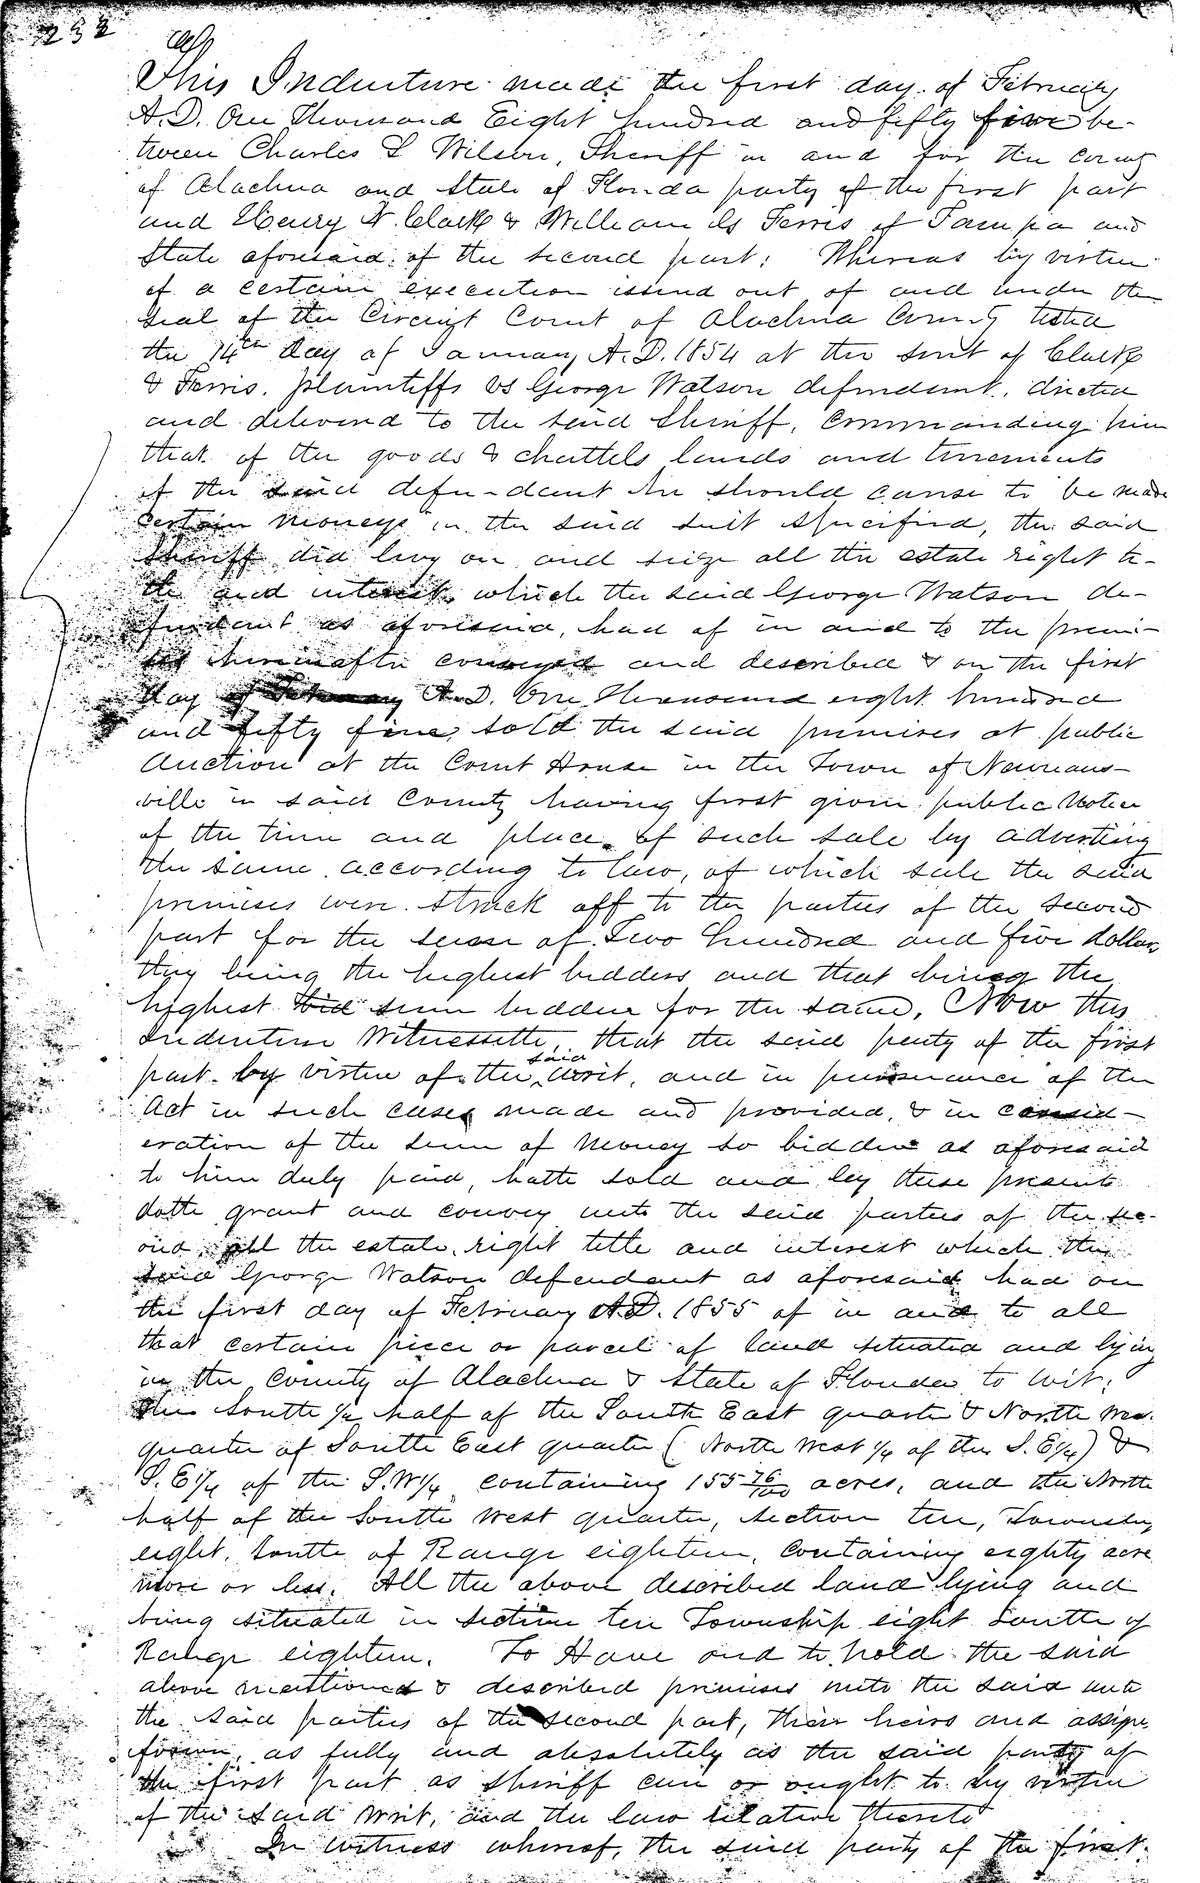 232
This Indenture made the first day of February
A.D. One Thousand Eight hundred and fifty five be-
tween Charles L Wilson, Sheriff in and for the county
of Alachua and State of Florida party of the first part
and Henry Clark & William Ferris of Tampa and
State aforesaid of the second part: Whereas by virtue
of a certain execution issued out of and under the
seal of the Circuit Court of Alachua County tested
the 14th day of January A.D. 1854 at the suit of Clark
& Ferris, plaintiffs vs George Watson defendant, directed
and delivered to the said Sheriff, commanding him
that of the goods & chattels lands and tenements
of the said defendant he should cause to be made
certain moneys in the said suit specified, the said
Sheriff did levy on and seize all the estate right ti-
tle and interest which the said George Watson de-
fendant as aforesaid, had of in and to the premi-
ses hereinafter conveyed and described & on the first
day of February A.D. One Thousand eight hundred
and fifty five, sold the said premises at public
Auction at the Court House in the Town of Newnans-
ville in said County having first given public Notice
of the time and place of such sale by adverting
the same according to law, at which sale the said
premises were struck off to the parties of the second
part for the sum of Two hundred and five dollars
they being the highest bidders and that being the
highest bid sum bidden for the same. Now this
Indenture Witnesseth, that the said party of the first
part by virtue of the said writ, and in pursuance of the
Act in such cases made and provided, & in consid-
eration of the sum of money so bidden as aforesaid
to him duly paid, hath sold and by these presents
doth grant and convey unto the said parties of the sec-
ond all the estate, right title and interest which the
said George Watson defendant as aforesaid had on
the first day of February A.D. 1855 of in and to all
that certain piece or parcel of land situated and lying
in the county of Alachua & State of Florida to wit:
The South ½ half of the South East quarter & North West
quarter of South East quarter (North West ¼ of the S.E¼) &
S.E 1/4 of the S.W 1/4 containing 155 76/100 acres, and the North
half of the South West quarter, section ten, Township
eight, South of Range eighteen, containing eighty acre
more or less. All the above described land lying and
being situated in section ten Township eight South of
Range eighteen. To Have and to hold the said
above mentioned & described premises unto the said unto
the said parties of the second part, their heirs and assigns
forever, as fully and absolutely as the said party of
the first part as Sheriff can or ought to by virtue
of the said writ, and the law relative thereto
In witness whereof, the said party of the first